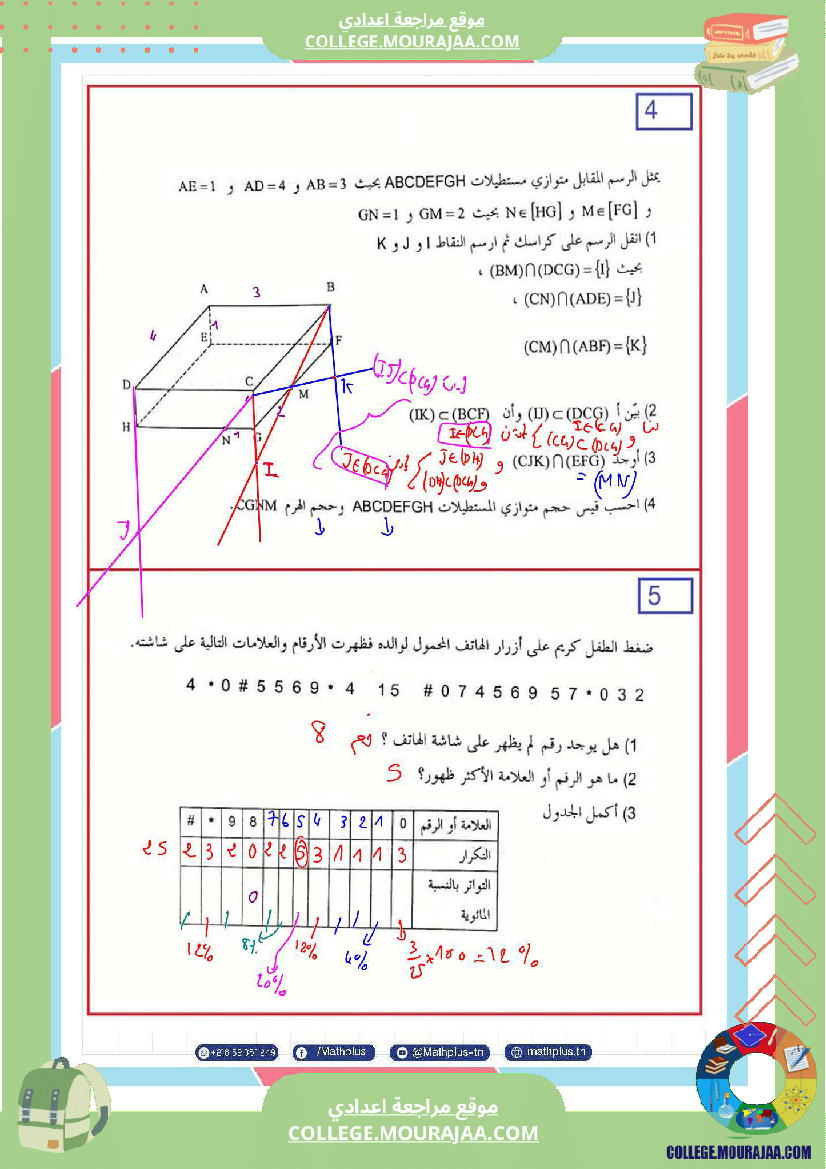 موقع مراجعة اعدادي
COLLEGE.MOURAJAA.COM
4
يمثل الرسم المقابل متوازي مستطيلات ABCDEFGH بحيث AB = 3 و AD = 4 و AE = 1
و M∈[FG] و N∈[HG] بحيث GM = 2 و GN = 1
1) انقل الرسم على كراسك ثم ارسم النقاط I و J و K
بحيث (BM)∩(DCG) = {I} ،
(CN)∩(ADE) = {J} ،
(CM)∩(ABF) = {K}
A B E F D C H G M N
3 4 1 2 1
I J K
(IJ)⊂(DCG)
2) بيّن أ (IJ)⊂(DCG) وأن (IK)⊂(BCF)
I∈(CG)
و (CG)⊂(DCG)
I∈(DCG)
3) أوجد (CJK)∩(EFG)
= (MN)
J∈(DH)
و (DH)⊂(DCG)
J∈(DCG)
4) احسب قيس حجم متوازي المستطيلات ABCDEFGH وحجم الهرم CGNM.
5
ضغط الطفل كريم على أزرار الهاتف المحمول لوالده فظهرت الأرقام والعلامات التالية على شاشته.
4 * 0 # 5 5 6 9 * 4 15 # 0 7 4 5 6 9 5 7 * 0 3 2
1) هل يوجد رقم لم يظهر على شاشة الهاتف ؟ نعم 8
2) ما هو الرقم أو العلامة الأكثر ظهور؟ 5
3) أكمل الجدول
العلامة أو الرقم 0 1 2 3 4 5 6 7 8 9 * #
التكرار 3 1 1 1 3 5 2 2 0 2 3 2 25
التواتر بالنسبة
المائوية 0
12% 8% 20% 12% 4% 3/25 × 100 = 12 %
/Mathplus
@Mathplus-tn
mathplus.tn
موقع مراجعة اعدادي
COLLEGE.MOURAJAA.COM
COLLEGE.MOURAJAA.COM